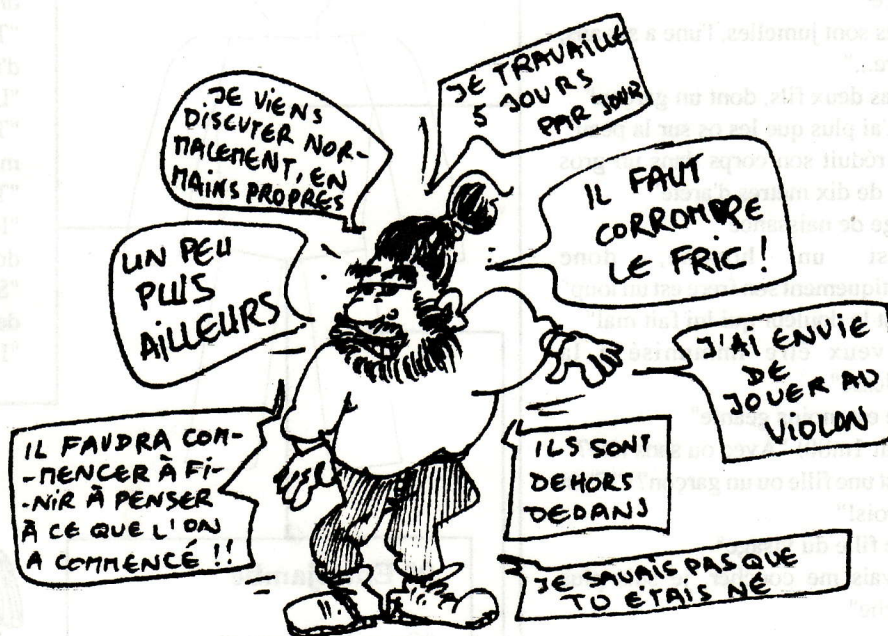 JE VIENS
DISCUTER NOR-
MALEMENT, EN
MAINS PROPRES
JE TRAVAILLE
5 JOURS
PAR JOUR
IL FAUT
CORROMPRE
LE FRIC !
UN PEU
PLUS
AILLEURS
J'AI ENVIE
DE
JOUER AU
VIOLON
IL FAUDRA COM-
-MENCER À FI-
-NIR À PENSER
À CE QUE L'ON
A COMMENCÉ !!
ILS SONT
DEHORS
DEDANS
JE SAVAIS PAS QUE
TU ETAIS NÉ